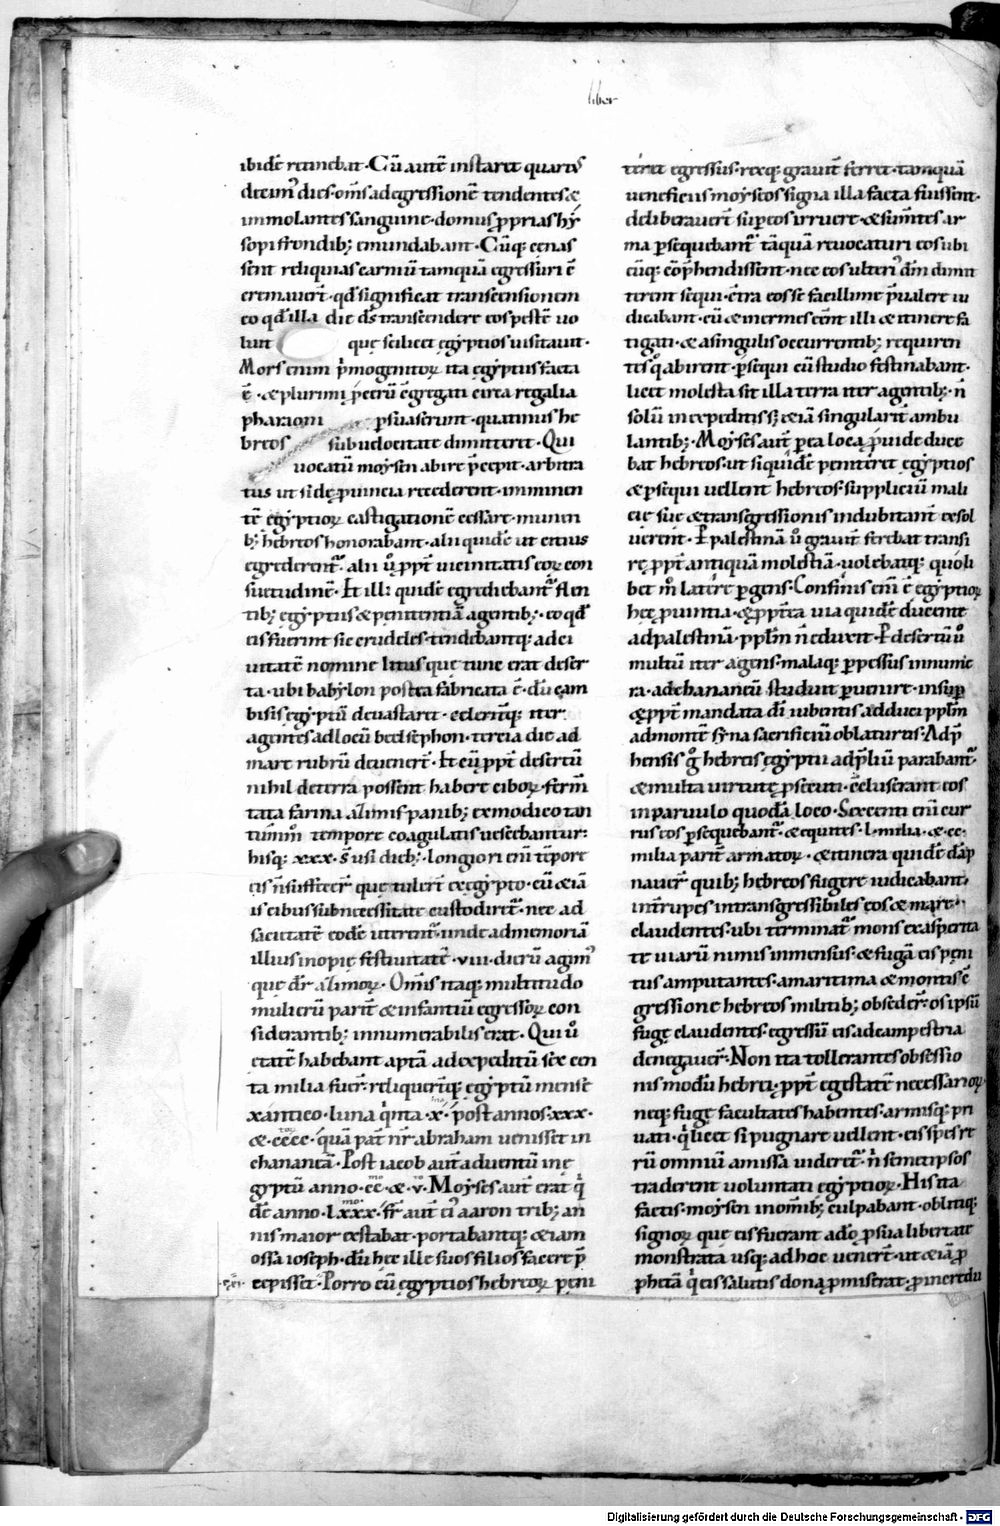 liber
ibidē retinebat · Cū autē instaret quartꝰ
decimꝰ dies · om̄s ad egressionē tendentes &
immolantes sanguine · domus ꝓprias hy
sopi frondib; emundabant · Cūq; cenas
sent reliquias carniū tamquā egressuri ē
cremaver̄t · qd̄ significat transcensionem
eo qd̄ illa die d̄s transcendere eos pestē vo
luit que scilicet egyptios visitavit ·
Mors enim p̓mogenitoꝝ ita egyptiis facta
ē · & plurimi p̄terū c̄gregati circa regalia
pharaoni ꝑsuaserunt · quatinus he
breos sub velocitate dimitteret · Qui
vocatū moysen abire p̄cepit · arbitra
tus ut si de ꝓvincia recederent · imminen
tē egyptioꝝ castigationē cessare · munen
b; hebreos honorabant · alii quidē ut citius
egrederent᷑ · alii v̊ ꝓpt̄ vicinitatis eoꝝ con
suetudinē · Et illi quidē egrediebant᷑ flen
tib; egyptiis & penitentiā agentib; · eo qd̄
eis fuerint sic crudeles · tendebantq; ad ci
vitatē nomine litus que tunc erat deser
ta · ubi babylon postea fabricata ē · dū cam
bisis egyptū devastaret · celeritq; iter
agentes ad locū beelsephon · tercia die ad
mare rubrū devener̄t · Et cū ꝓpt̄ desertū
nihil de terra possent habere ciboꝝ · ferm̄
tata farina alimis panib; ex modico tan
tūm̄m tempore coagulatis vescebantur:
hisq; xxx · s̄ usi dieb; · longiori eni tēpore
eis n̄ suffecer̄ que tuler̄t ex egypto · cū &iā
iis cibus sub necessitate custodiret᷑ · nec ad
sacietatē eodē uterent᷑ · unde ad memoriā
illius inopie festivitatē · viii · dierū agimꝰ
que dr̄ alimoꝝ · Om̄is itaq; multitudo
mulierū parit̄ & infantiū egressoꝝ con
siderantib; innumerabilis erat · Qui v̊
etatē habebant aptā ad expeditū sex cen
ta milia fuer̄ · reliquer̄tq; egyptū mense
xantico · luna q̓nta · x · post annos · xxx ·
& · cccc · quā pat̄ nr̄ abraham venisset in
chananeā · Post iacob aut̄ adventū in e
gyptū anno · cc · & · v · Moyses aut̄ erat q̓
dē anno · lxxx · fr̄ aut̄ ei aaron trib; an
nis maior extabat · portabantq; & iam
ossa ioseph · dū hec ille suos filios facere p̄
cepisset · Porro cū egyptios hebreoꝝ peni
teret egressus · rexq; gravit̄ ferret · tamquā
veneficiis moyseos signa illa facta fuissent ·
deliberaver̄t sup eos irruere · & sum̄tes ar
ma ꝑsequebant᷑ tāquā revocaturi eos ubi
cūq; cōp̄hendissent · nec eos ulteriꝰ dm̄ dimit
terent sequi · c̄tra eos se facillime p̄valere iu
dicabant · cū & inermes eēnt illi & itinere fa
tigati · & a singulis occurrentib; requiren
tes q̊ abirent · ꝑsequi cū studio festinabant ·
licet molesta sit illa terra iter agentib; · n̄
solū in expeditis s; &iā singularit̄ ambu
lantib; · Moyses aut̄ ꝑ ea loca ꝓvide duce
bat hebreos · ut si quidē peniteret egyptios
& ꝑsequi vellent hebreos · suppliciū mali
cie sue & transgressionis indubitant̄ exsol
verent · P palestinā v̊ gravit̄ ferebat transi
re ꝓpt̄ antiquā molestiā · volebatq; quoli
bet m̊ latere ꝑgens · Confinis eni ē egyptioꝝ
hec ꝓvintia · & ꝓpt̄ea via quidē ducente
ad palestinā · pplm̄ n̄ eduxit · P desertū v̊
multū iter agens · malaq; ꝑpessus innume
ra · ad chananeū studuit ꝑvenire · insuꝑ
& ꝓpt̄ mandata di iubentis adduci pplm̄
ad montē syna sacrificiū oblaturis · Ad p̄
hensis g̊ hebreis egyptii ad p̄liū parabant᷑ ·
& multa virtute ꝑsecuti · c̄cluserant eos
in parvulo quodā loco · Sexcenti eni cur
rus eos ꝑsequebant᷑ · & equites · l · milia · & · cc ·
milia parit̄ armatoꝝ · & itinera quidē dāp
naver̄ quib; hebreos fugere iudicabant ·
int̄ rupes intransgressibiles eos & mare
claudentes · ubi terminat᷑ mons exasperita
te viarū nimis inmensus · & fugā eis peni
tus amputantes · a maritima & montis ē
gressione hebreos militib; obseder̄ · os ipsū
fuge claudentes · egressū eis ad campestria
denegaver̄ · Non ita tollerantes obsessio
nis modū hebrei · ꝓpt̄ egestatē necessarioꝝ
neq; fuge facultates habentes · armisq; pri
vati · q̓ licet si pugnare vellent · eis spes re
rū omniū amissa videret᷑ · n̓ semetipsos
traderent voluntati egyptioꝝ · His ita
factis · moysen in om̄ib; culpabant · obliti q;
signoꝝ que eis fuerant a dō ꝓ sua libertate
monstrata usq; ad hoc vener̄t · ut &iā ꝓ
phetā q̓ eis salutis dona ꝓmiserat · ꝓ incredu
Digitalisierung gefördert durch die Deutsche Forschungsgemeinschaft - DFG